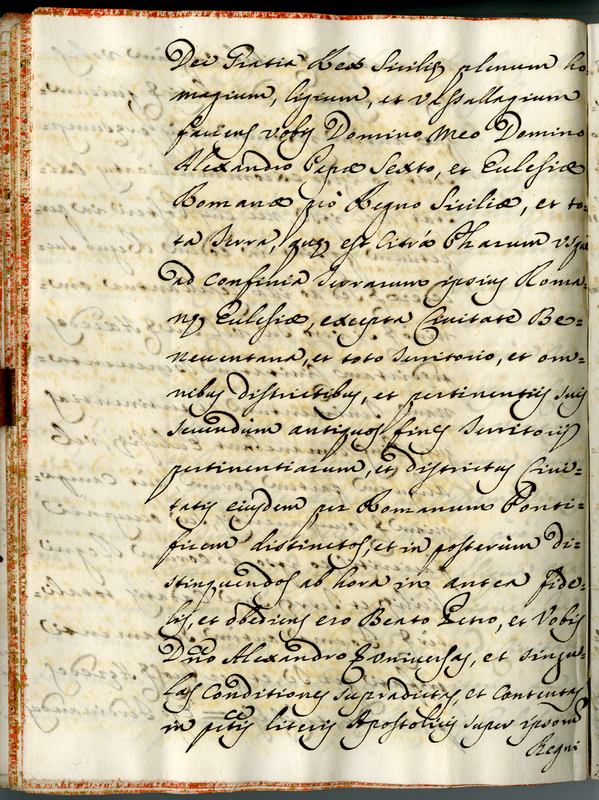 Dei Gratia Rex Sicilię plenum ho
magium, ligium, et Vassallagium
faciens Vobis Domino Meo Domino
Alexandro Papæ Sexto, et Ecclesiæ
Romanæ prò Regno Siciliæ, et to=
ta Terra, quę est Citrà Pharum Vsque
ad Confinia Terrarum ipsius Roma=
nę Ecclesiæ, excepta Civitate Be=
neventana, et toto Territorio, et om=
nibus districtibus, et pertinentijs suis
secundum antiquos fines Territorij
pertinentiarum, et districtus Civi=
tatis eiusdem per Romanum Ponti=
ficem distinctos, et in posterùm di=
stinguendos ab hora in antea fide=
lis, et obediens ero Beato Petro, et Vobis
Dno Alexandro Universas, et singu=
las Conditiones supradictas, et Contentas
in literis Apostolicis super ipsoru
Regni